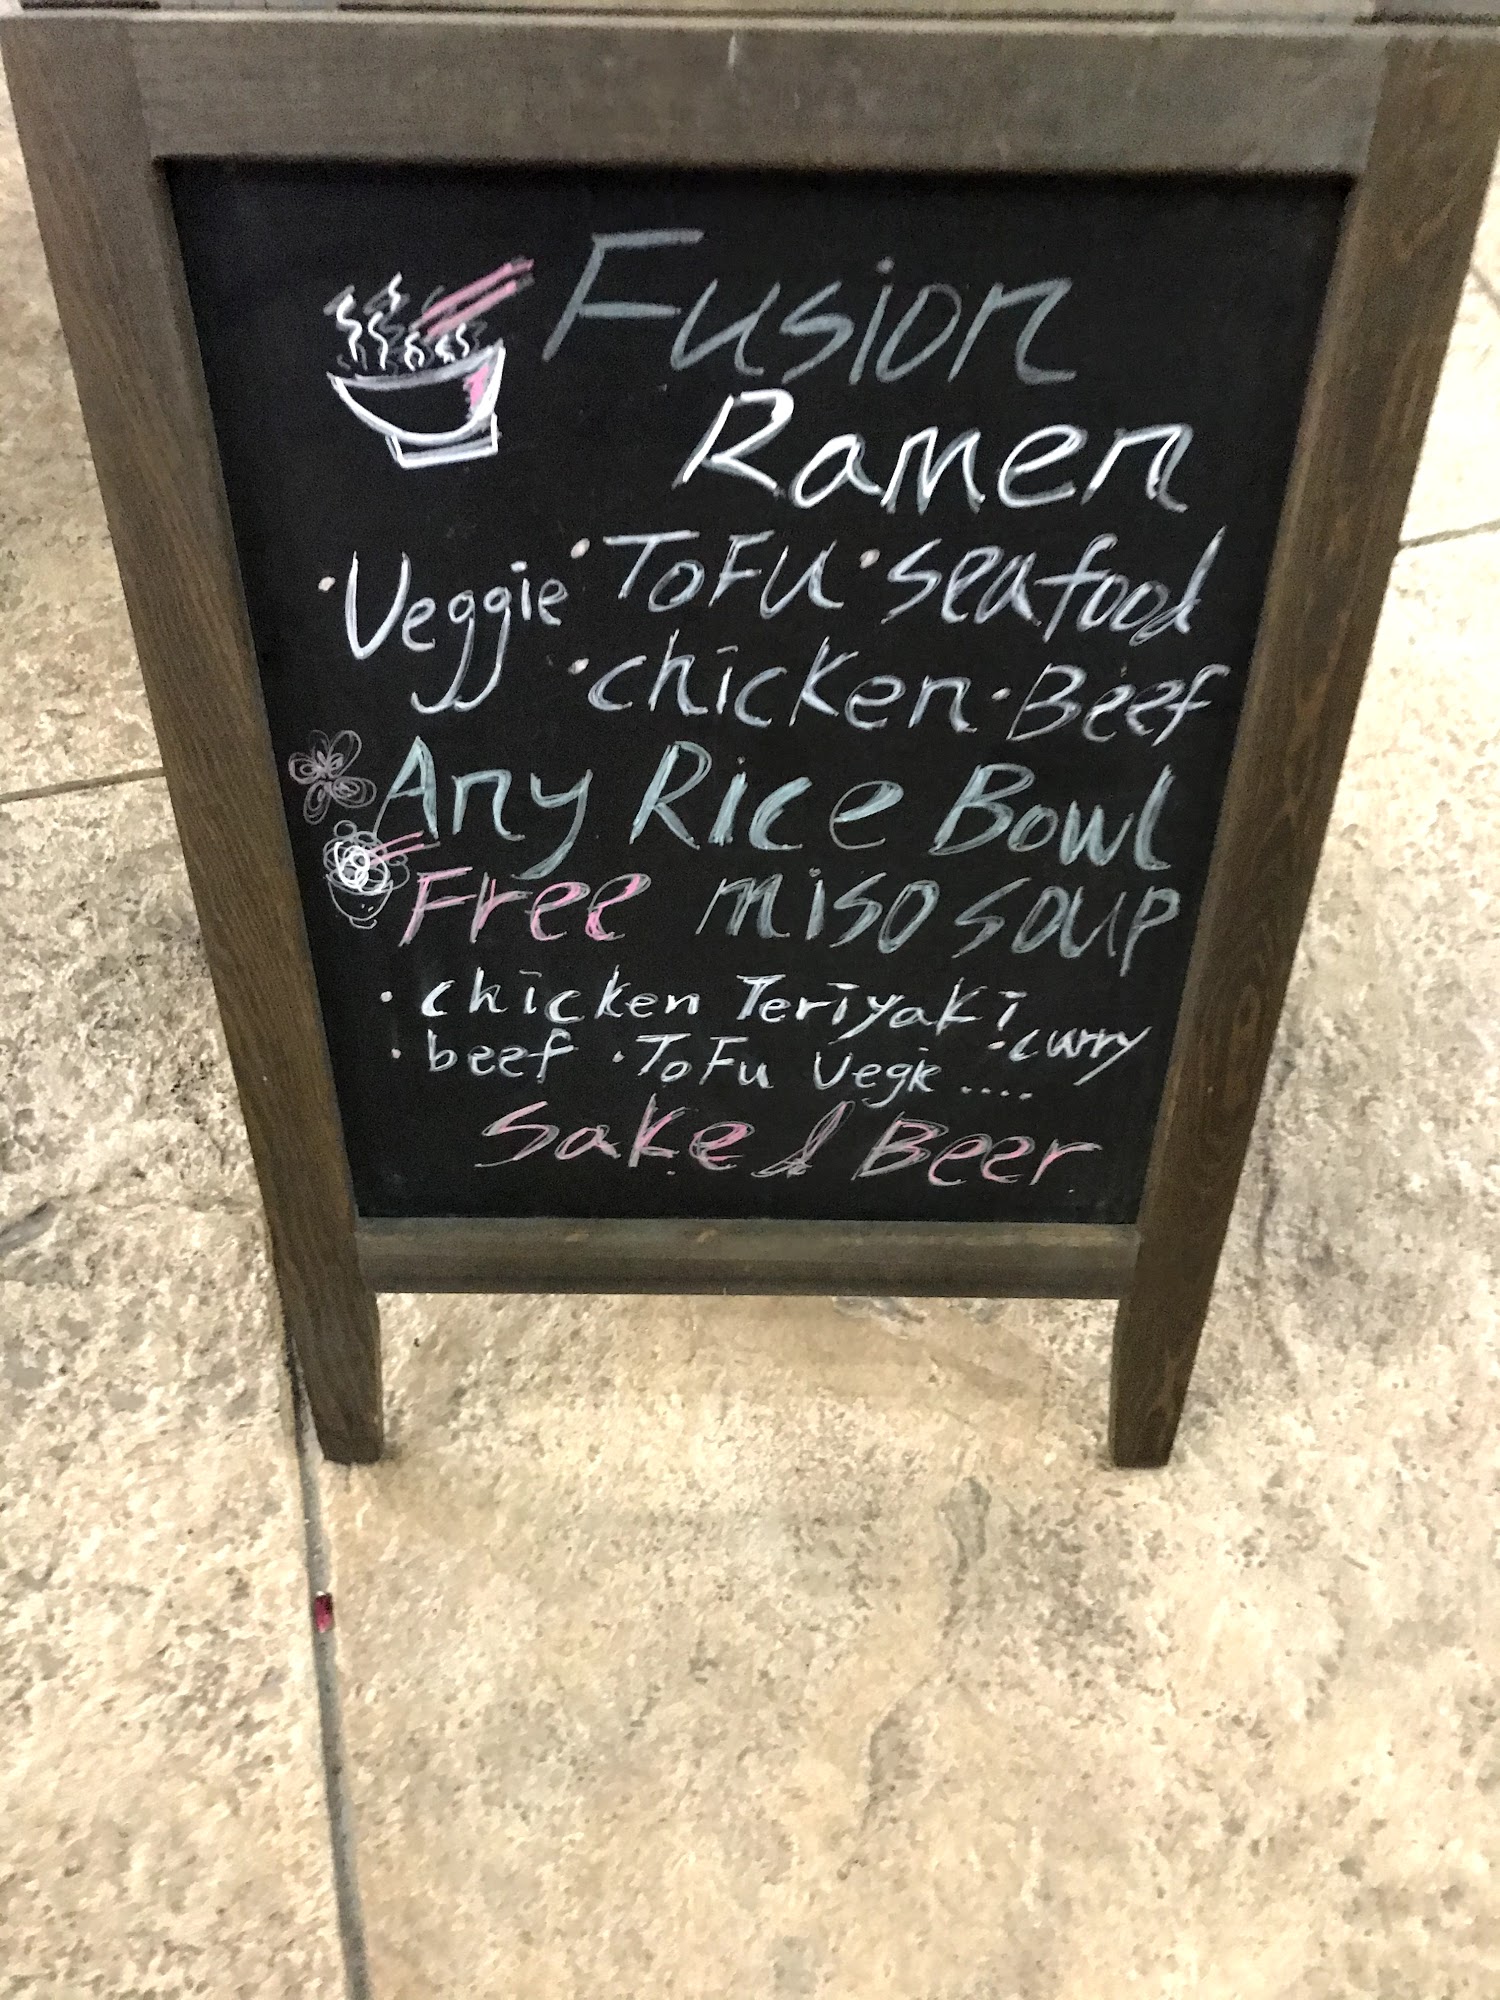 Fusion
Ramen
·Veggie ·ToFu ·seafood
·chicken ·Beef
Any Rice Bowl
Free miso soup
·chicken Teriyaki
·curry
·beef ·ToFu Vegie ....
Sake & Beer